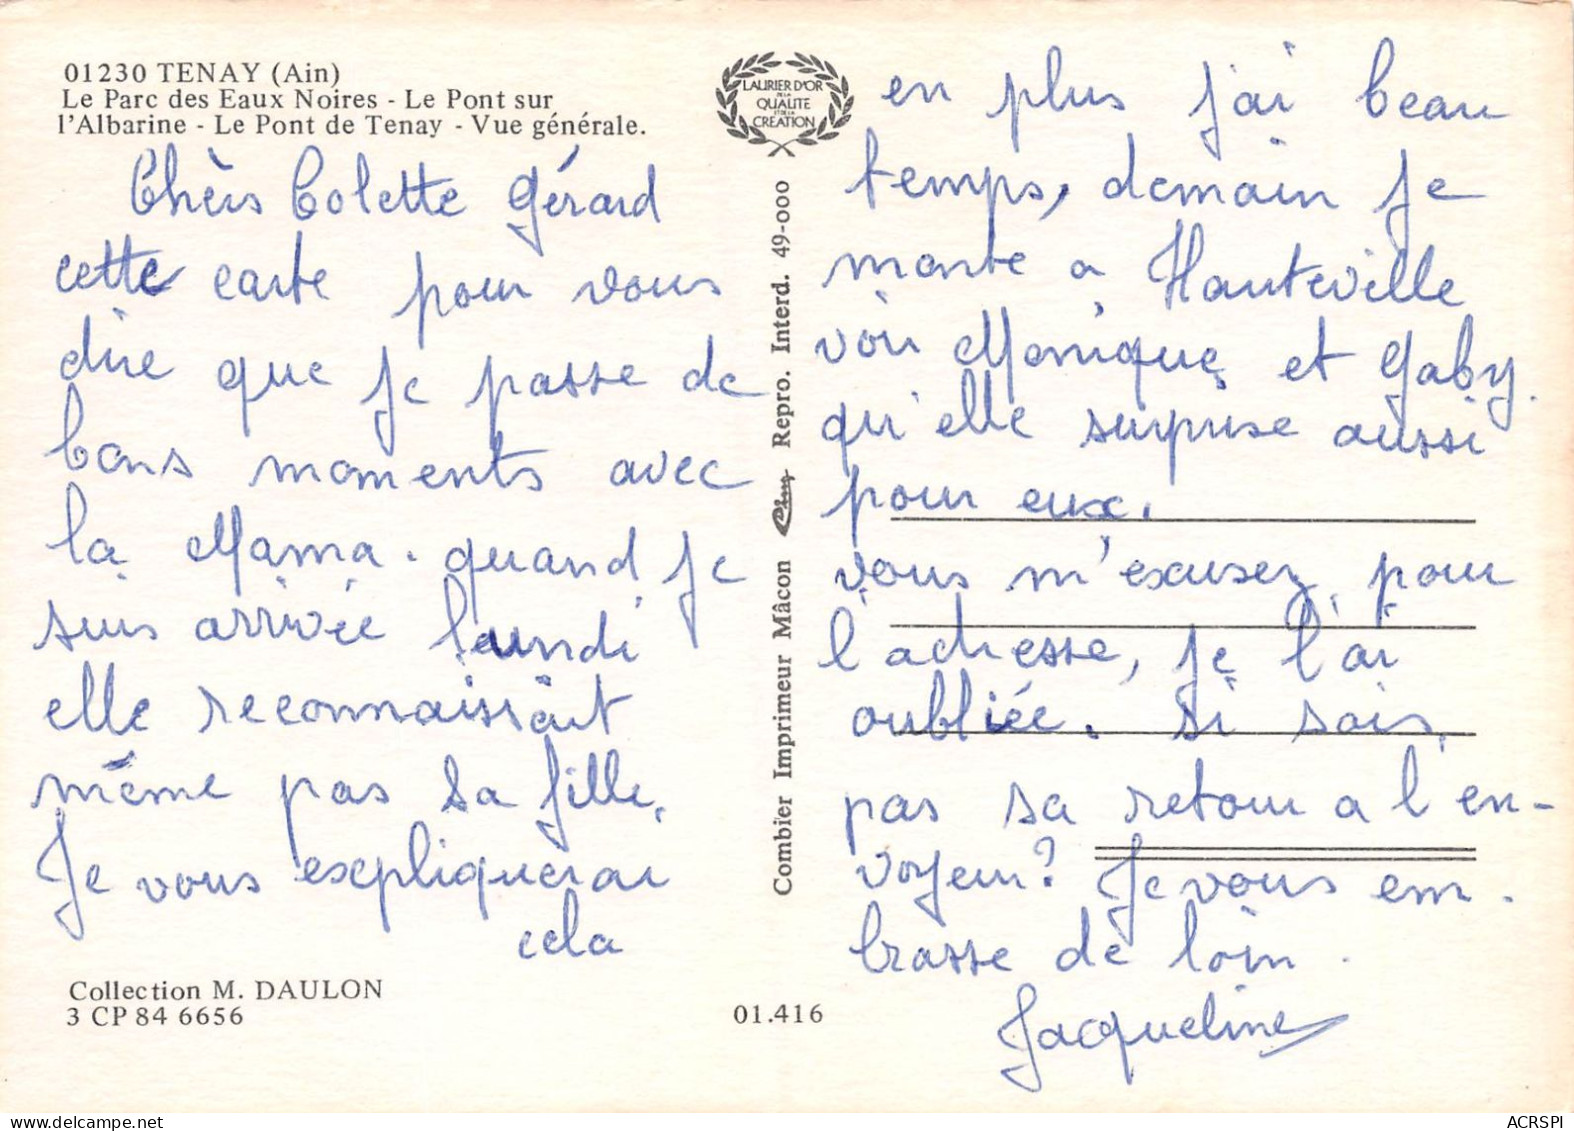 01230 TENAY (Ain)
Le Parc des Eaux Noires - Le Pont sur
l'Albarine - Le Pont de Tenay - Vue générale.
Chèrs Colette Gérard
cette carte pour vous
dire que je passe de
bons moments avec
la Mama. quand je
suis arrivée lundi
elle reconnaissait
même pas sa fille.
Je vous expliquerai
cela
Collection M. DAULON
3 CP 84 6656
01.416
LAURIER D'OR
DE LA
QUALITE
ET DE LA
CREATION
Combier Imprimeur Mâcon Repro. Interd. 49-000
en plus j'ai beau
temps, demain je
monte a Hauteville
voir Monique et Gaby.
qu'elle surprise aussi
pour eux.
vous m'excusez pour
l'adresse, je l'ai
oubliée. Si sois
pas sa retour a l'en-
voyeur? Je vous em-
brasse de loin.
Jacqueline
ACRSPI